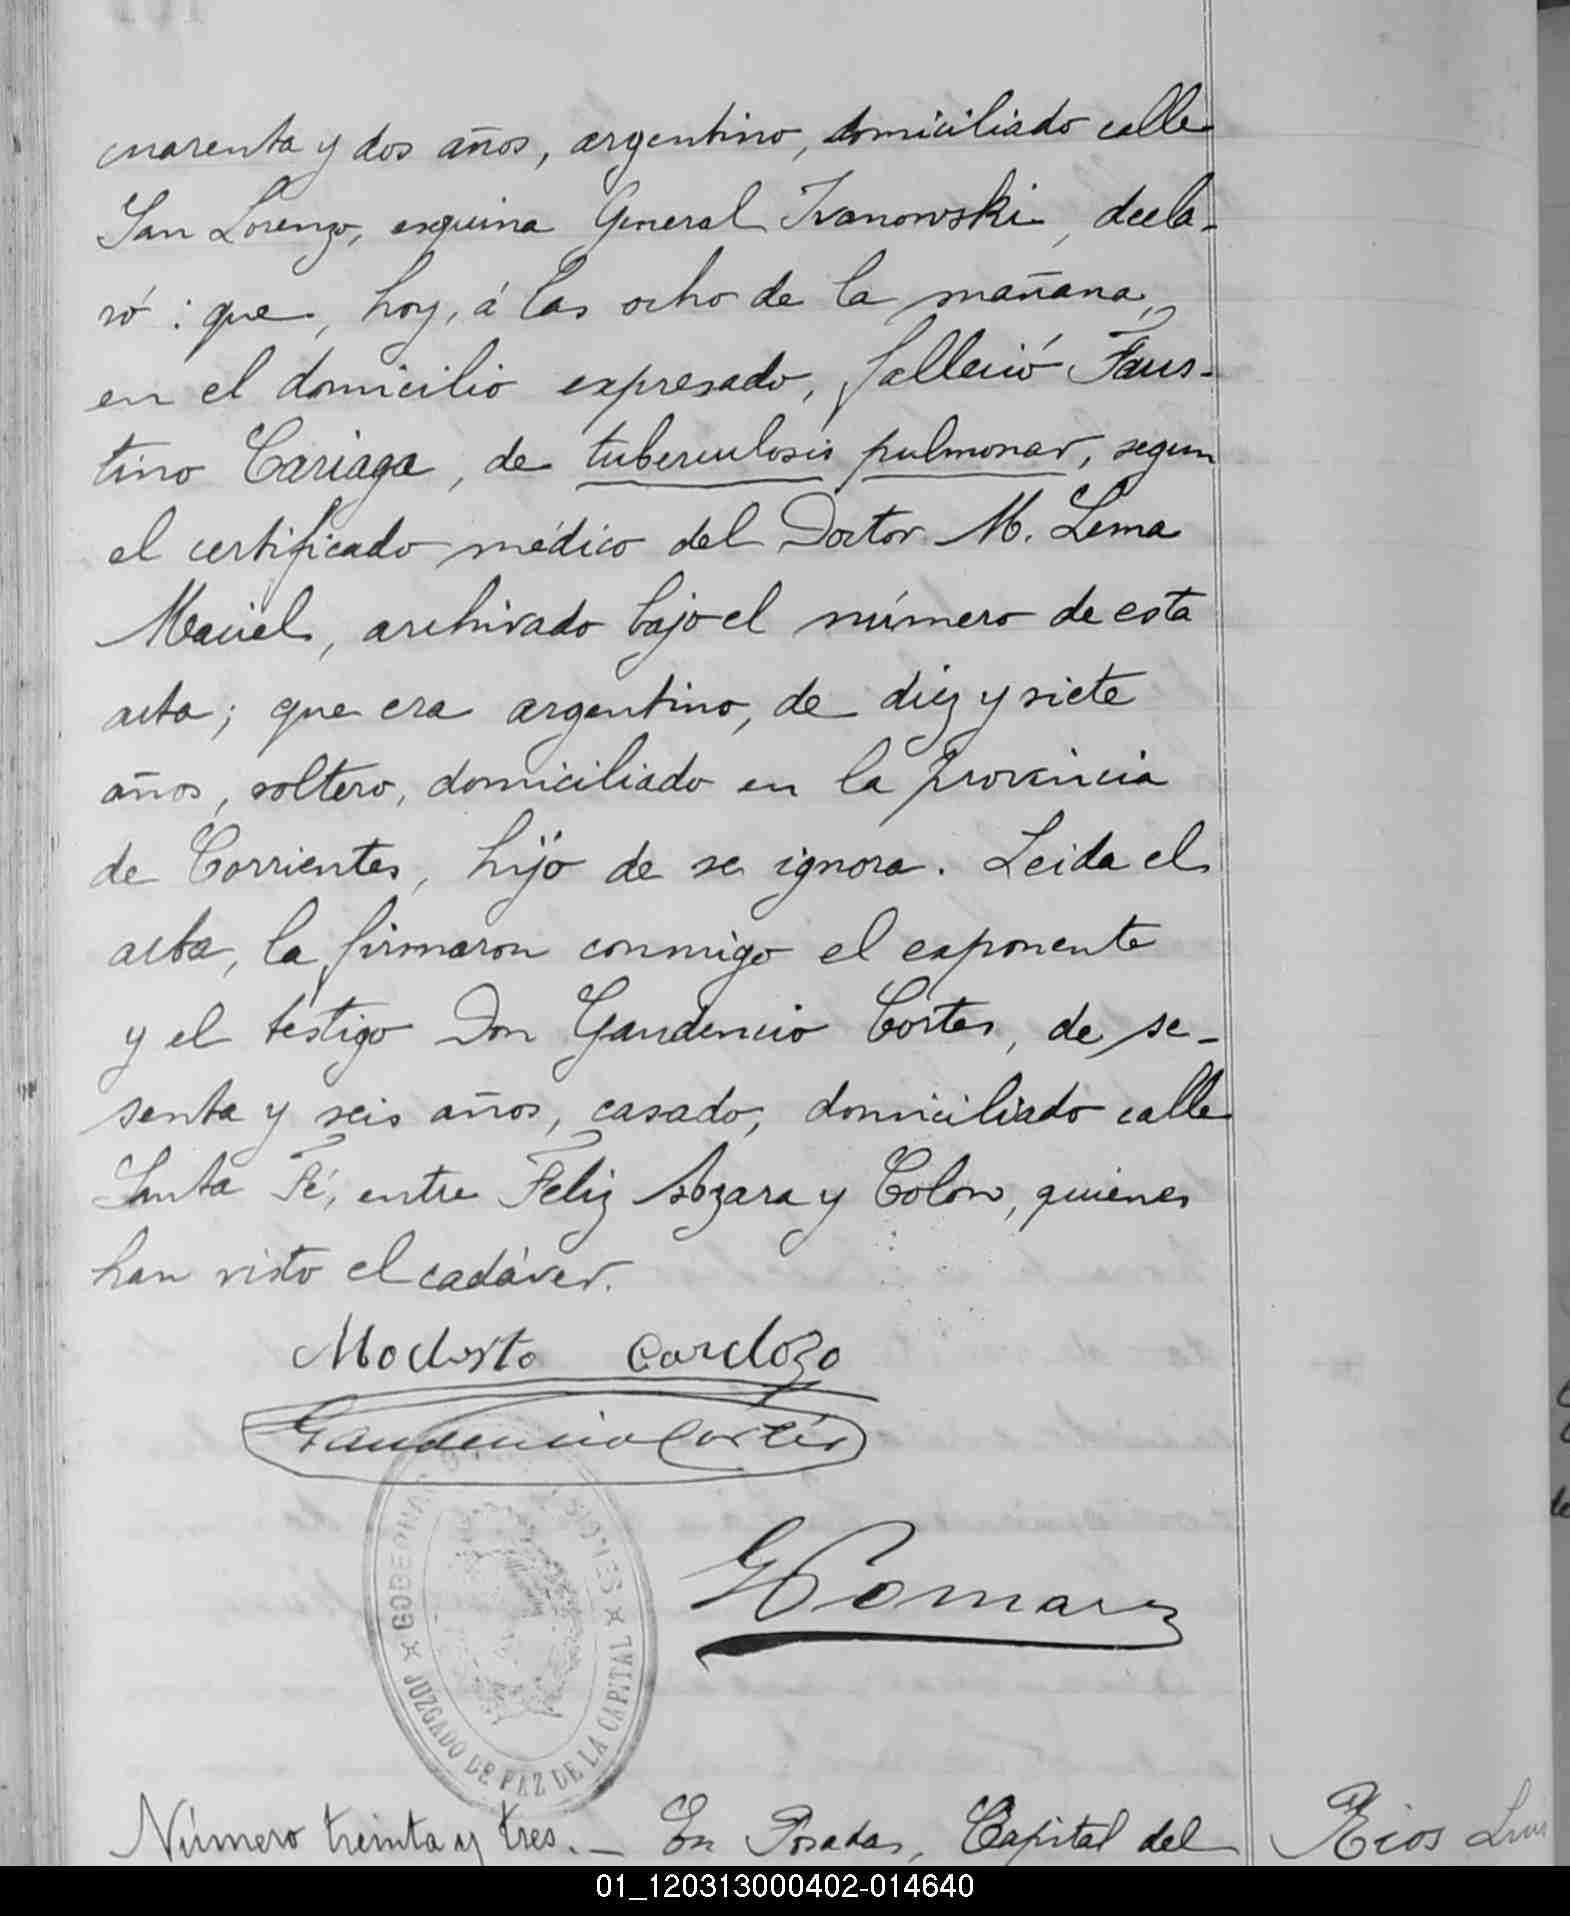 cuarenta y dos años, argentino, domiciliado calle
San Lorenzo, esquina General Ivanowski, decla-
ró: que, hoy, á las ocho de la mañana,
en el domicilio expresado, falleció Faus-
tino Cariaga, de tuberculosis pulmonar, segun
el certificado médico del Doctor M. Lema
Maciel, archivado bajo el número de esta
acta; que era argentino, de diez y siete
años, soltero, domiciliado en la provincia
de Corrientes, hijo de se ignora. Leida el
acta, la firmaron conmigo el exponente
y el testigo Don Gaudencio Cortes, de se-
senta y seis años, casado, domiciliado calle
Santa Fé, entre Feliz Azara y Colon, quienes
han visto el cadáver.
Modesto Cardozo
Gaudencio Cortés
GOBERNA
SIONES
JUZGADO DE PAZ DE LA CAPITAL
Número treinta y tres. — En Posadas, Capital del
Rios Luis
01_120313000402-014640